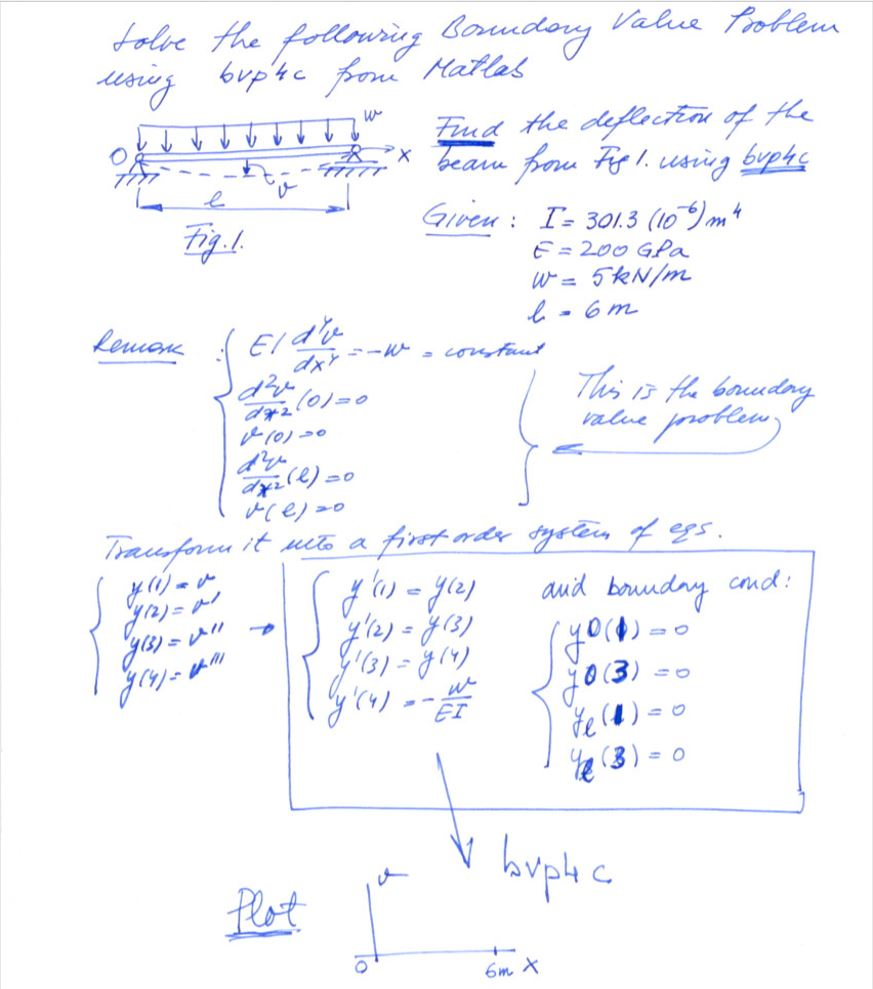 Solve the following Boundary Value Problem
using bvp4c from Matlab
w
O
x
v
l
Fig. 1.
Find the deflection of the
beam from Fig 1. using bvp4c
Given : I = 301.3 (10⁻⁶) m⁴
E = 200 GPa
w = 5 kN/m
l = 6 m
Remark : EI d⁴v/dx⁴ = -w = constant
d²v/dx² (0) = 0
v(0) = 0
d²v/dx² (l) = 0
v(l) = 0
This is the boundary
value problem
Transform it into a first order system of eqs.
y(1) = v
y(2) = v'
y(3) = v''
y(4) = v'''
y'(1) = y(2)
y'(2) = y(3)
y'(3) = y(4)
y'(4) = - w/EI
and boundary cond:
y0(1) = 0
y0(3) = 0
ye(1) = 0
ye(3) = 0
bvp4c
Plot
v
0
6m x